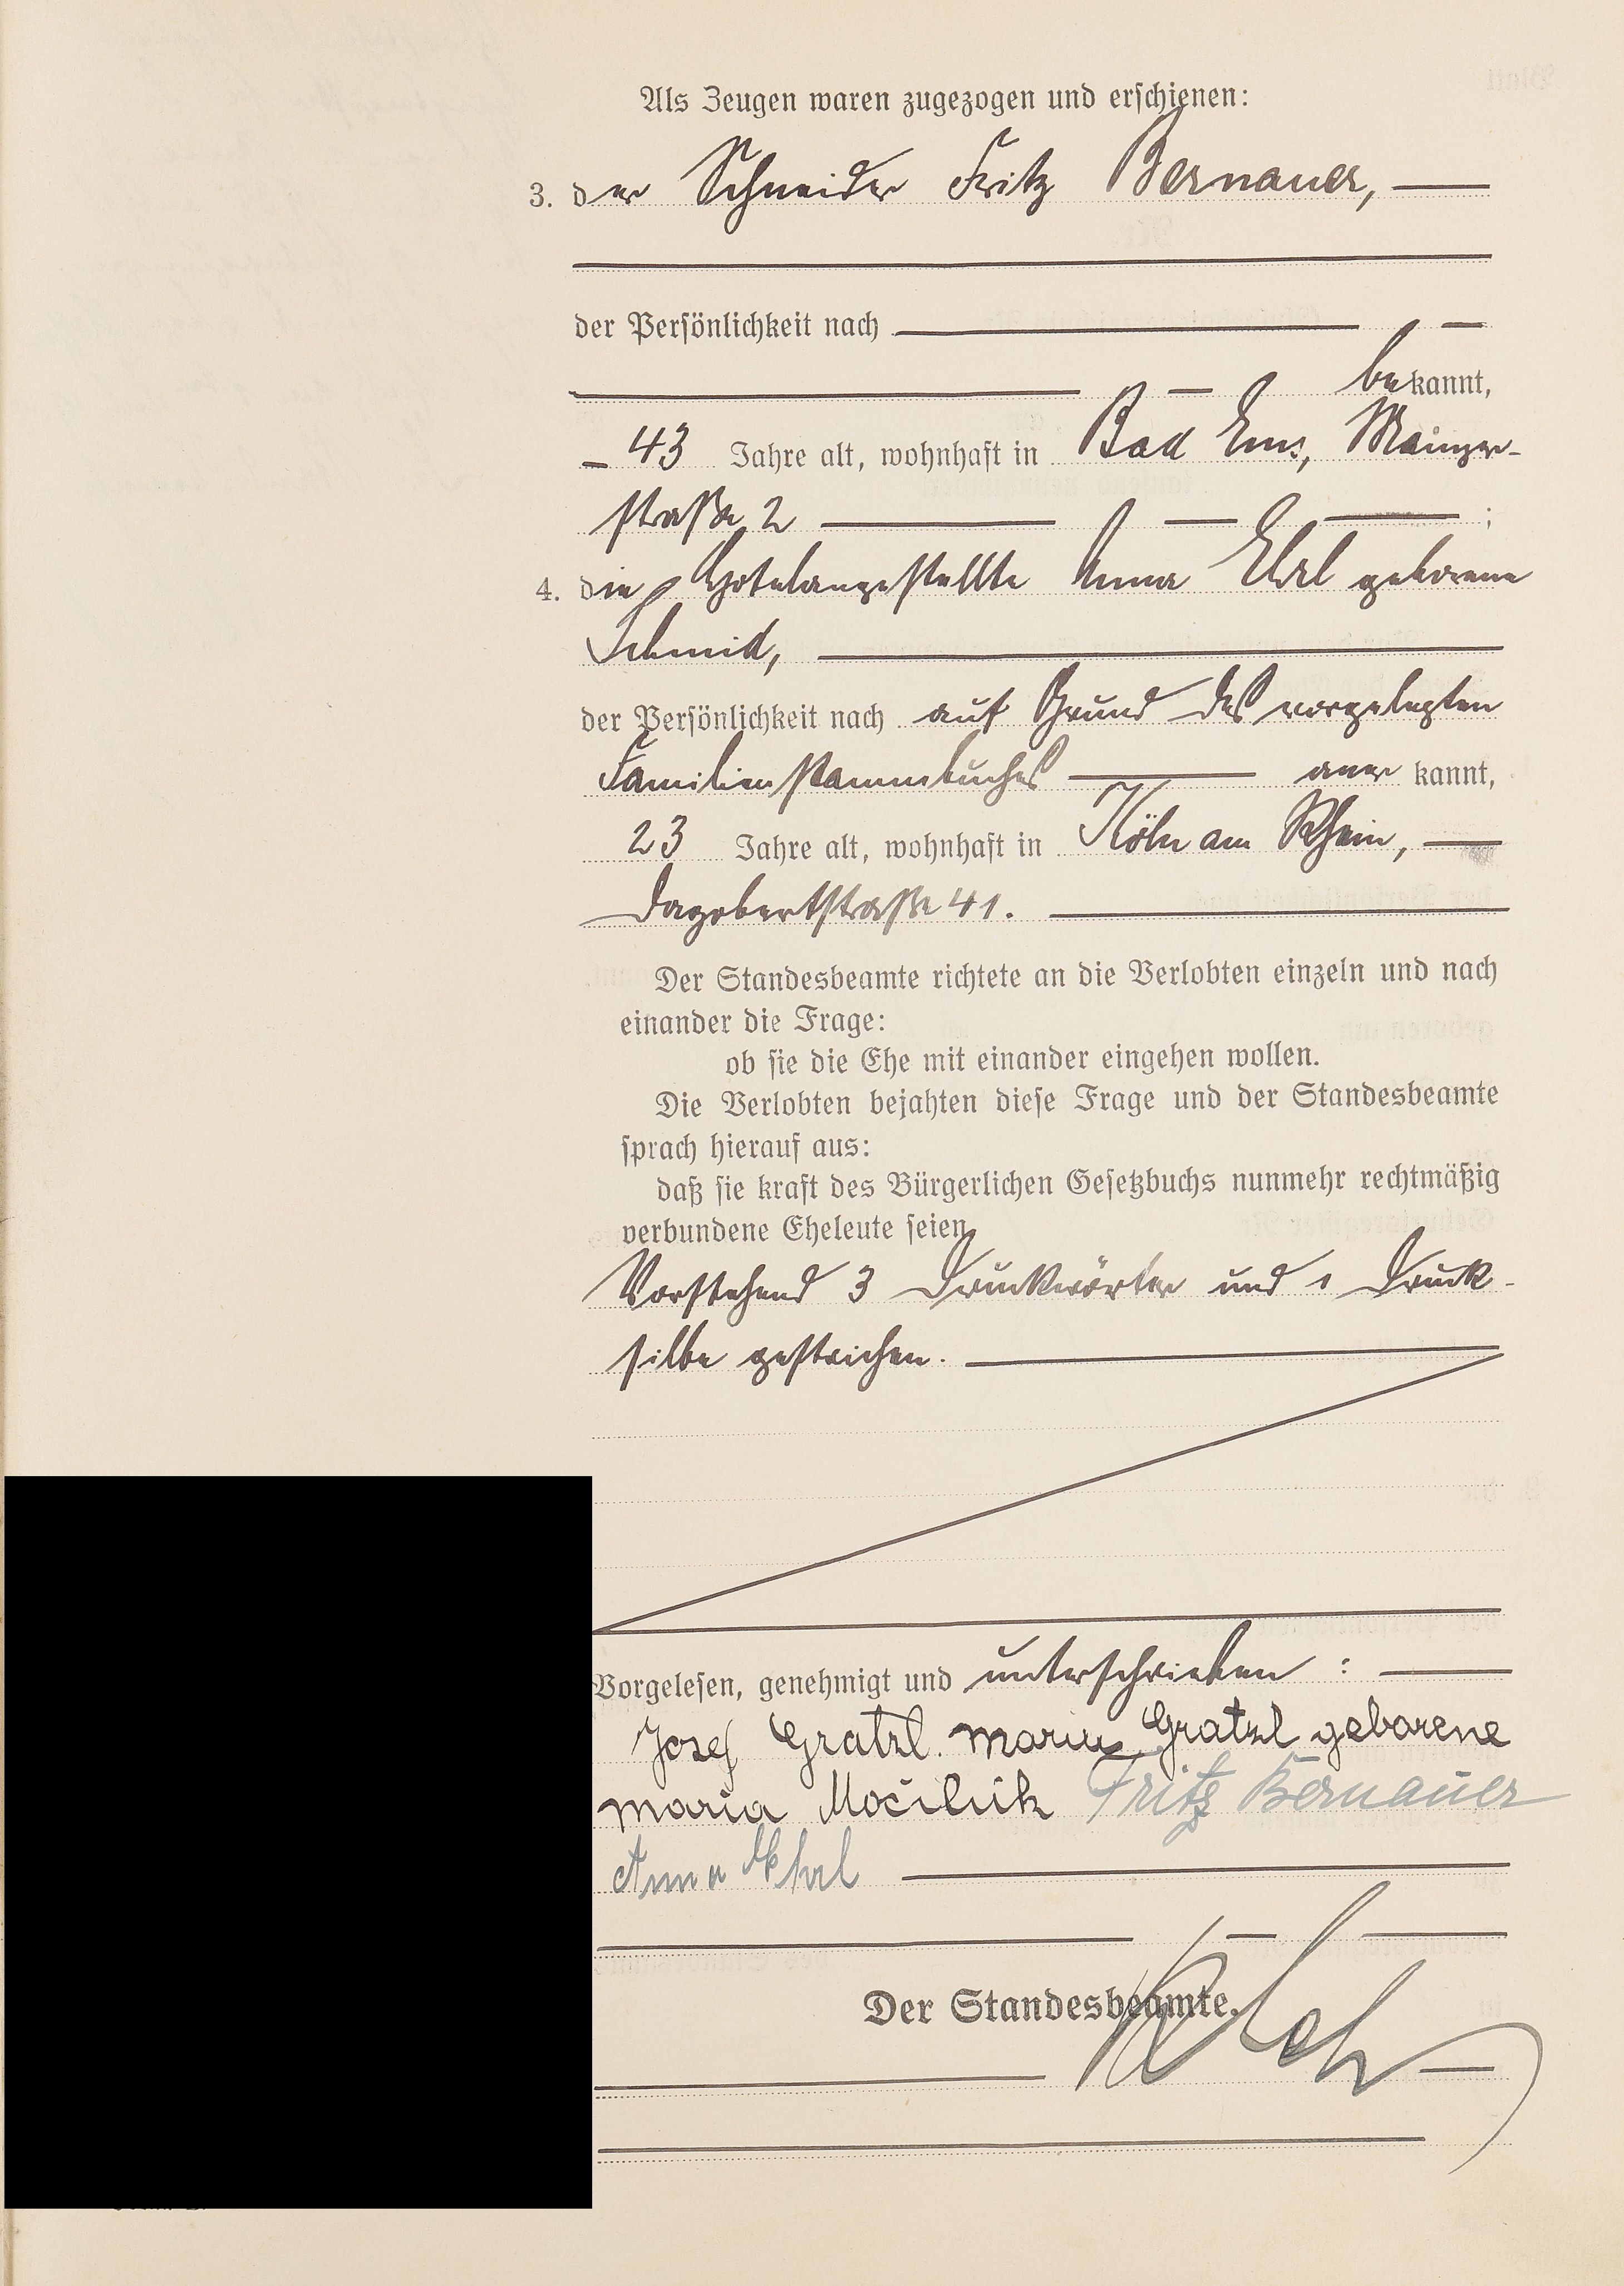 Als Zeugen waren zugezogen und erschienen:
3. der Schneider Fritz Bernauer,
der Persönlichkeit nach
bekannt,
43 Jahre alt, wohnhaft in Bad Ems, Mainzer-
straße 2 ;
4. die Hotelangestellte Anna Ehrl geborene
Schmid,
der Persönlichkeit nach auf Grund des vorgelegten
Familienstammbuches anerkannt,
23 Jahre alt, wohnhaft in Köln am Rhein,
Dagobertstraße 41.
Der Standesbeamte richtete an die Verlobten einzeln und nach
einander die Frage:
ob sie die Ehe mit einander eingehen wollen.
Die Verlobten bejahten diese Frage und der Standesbeamte
sprach hierauf aus:
daß sie kraft des Bürgerlichen Gesetzbuchs nunmehr rechtmäßig
verbundene Eheleute seien.
Vorstehend 3 Druckwörter und 1 Druck-
silbe gestrichen.
Vorgelesen, genehmigt und unterschrieben :
Josef Gratzl. Maria Gratzl geborene
Maria Močilnik Fritz Bernauer
Anna Ehrl
Der Standesbeamte.